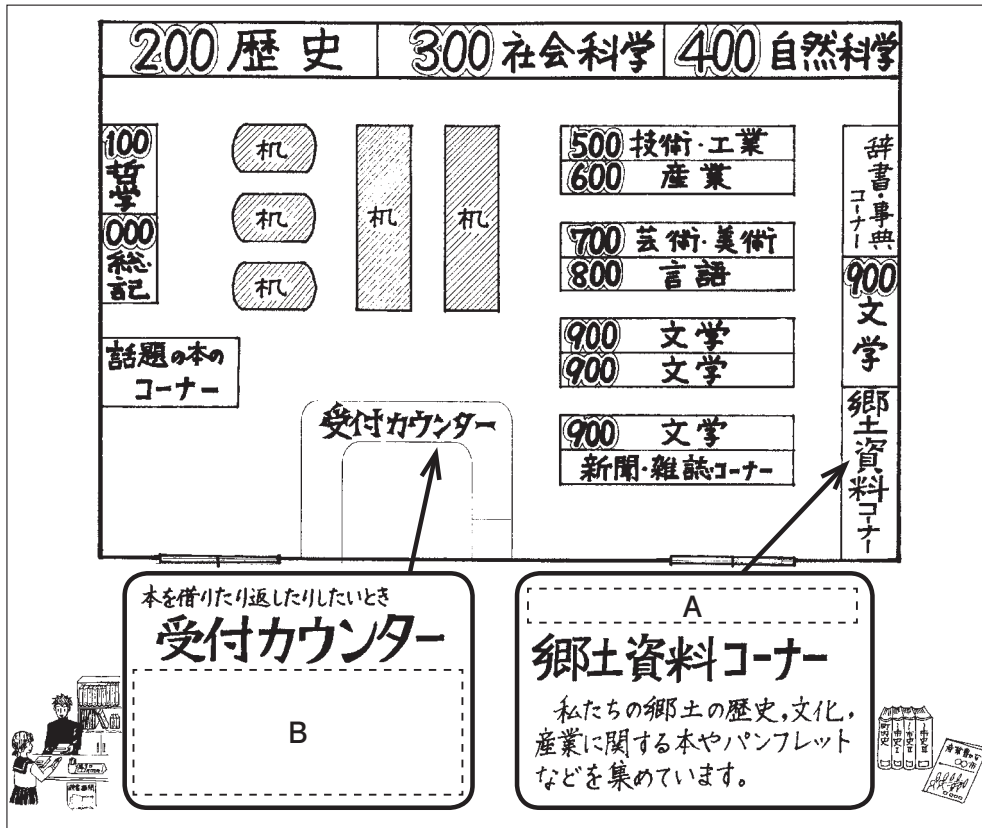 200 歴史
300 社会科学
400 自然科学
100 哲学
000 総記
机
机
机
机
机
500 技術・工業
600 産業
700 芸術・美術
800 言語
900 文学
900 文学
900 文学
新聞・雑誌コーナー
辞書・事典コーナー
900 文学
郷土資料コーナー
話題の本の
コーナー
受付カウンター
本を借りたり返したりしたいとき
受付カウンター
B
A
郷土資料コーナー
私たちの郷土の歴史,文化,
産業に関する本やパンフレット
などを集めています。